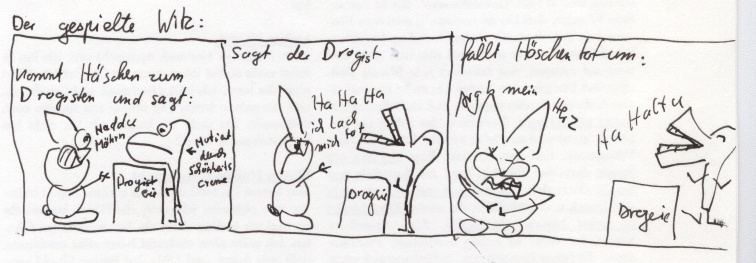 Der gespielte Witz:
Kommt Häschen zum
Drogisten und sagt:
Haddu
Möhrn
Mutiert
durch
schönheits
Creme
Drogist
erie
Sagt der Drogist
Ha Ha Ha
ich lach
mich tot
Drog
fällt Höschen tot um:
Argh mein
Herz
Ha HaHa
Drogerie